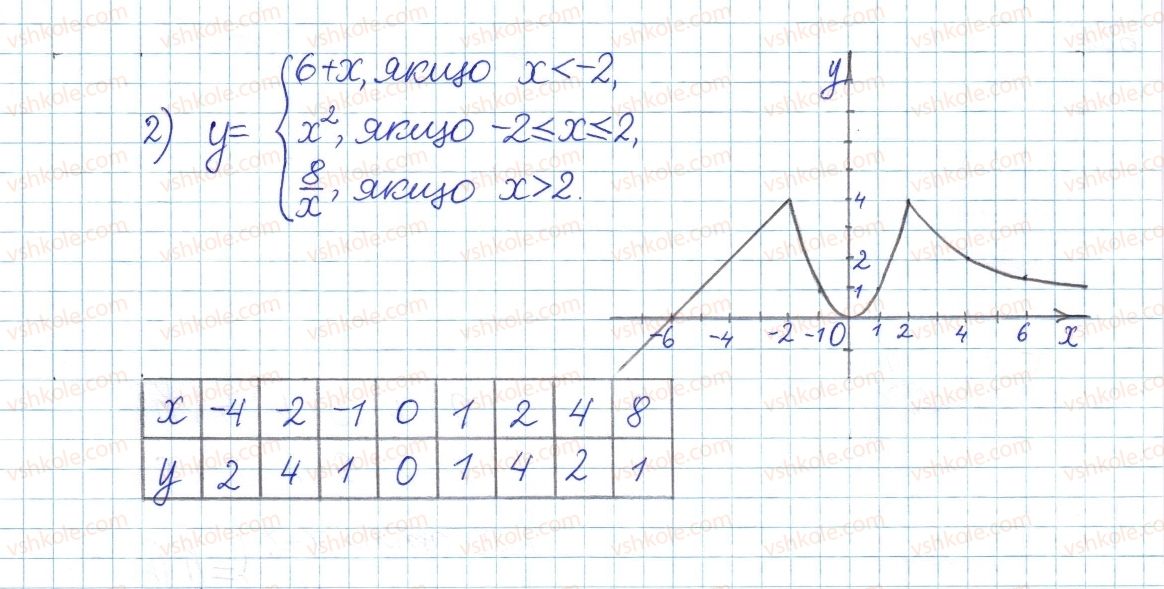 2) y= { 6+x, якщо x<-2,
x², якщо -2≤x≤2,
8/x, якщо x>2.
y
4
2
1
-6 -4 -2 -1 0 1 2 4 6 x
x -4 -2 -1 0 1 2 4 8
y 2 4 1 0 1 4 2 1
vshkole.com